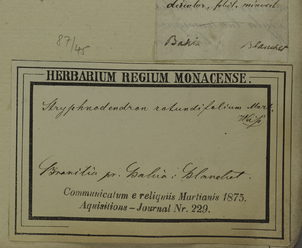 discolor, foliol. minori
Bahia Blanchet
87/45
HERBARIUM REGIUM MONACENSE.
Stryphnodendron rotundifolium Mart.
Brasilia pr. Bahia: Blanchet.
Communicatum e reliquiis Martianis 1875.
Aquisitions-Journal Nr. 229.